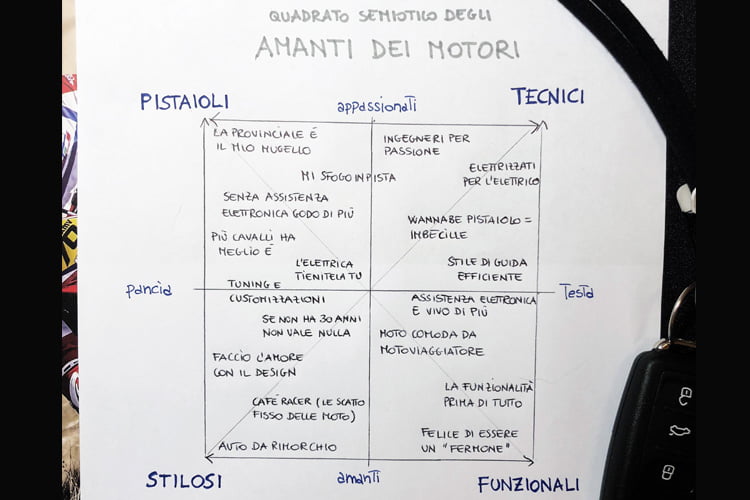 QUADRATO SEMIOTICO DEGLI
AMANTI DEI MOTORI
PISTAIOLI
appassionati
TECNICI
LA PROVINCIALE É
IL MIO MUGELLO
INGEGNERI PER
PASSIONE
MI SFOGO IN PISTA
ELETTRIZZATI
PER L'ELETTRICO
SENZA ASSISTENZA
ELETTRONICA GODO DI PIÙ
WANNABE PISTAIOLO =
IMBECILLE
PIÙ CAVALLI HA
MEGLIO É
L'ELETTRICA
TIENITELA TU
STILE DI GUIDA
EFFICIENTE
pancia
Testa
TUNING E
CUSTOMIZZAZIONI
ASSISTENZA ELETTRONICA
E VIVO DI PIÙ
SE NON HA 30 ANNI
NON VALE NULLA
MOTO COMODA DA
MOTOVIAGGIATORE
FACCIO L'AMORE
CON IL DESIGN
LA FUNZIONALITÀ
PRIMA DI TUTTO
CAFÉ RACER (LE SCATTO
FISSO DELLE MOTO)
AUTO DA RIMORCHIO
FELICE DI ESSERE
UN "FERMONE"
STILOSI
amanti
FUNZIONALI